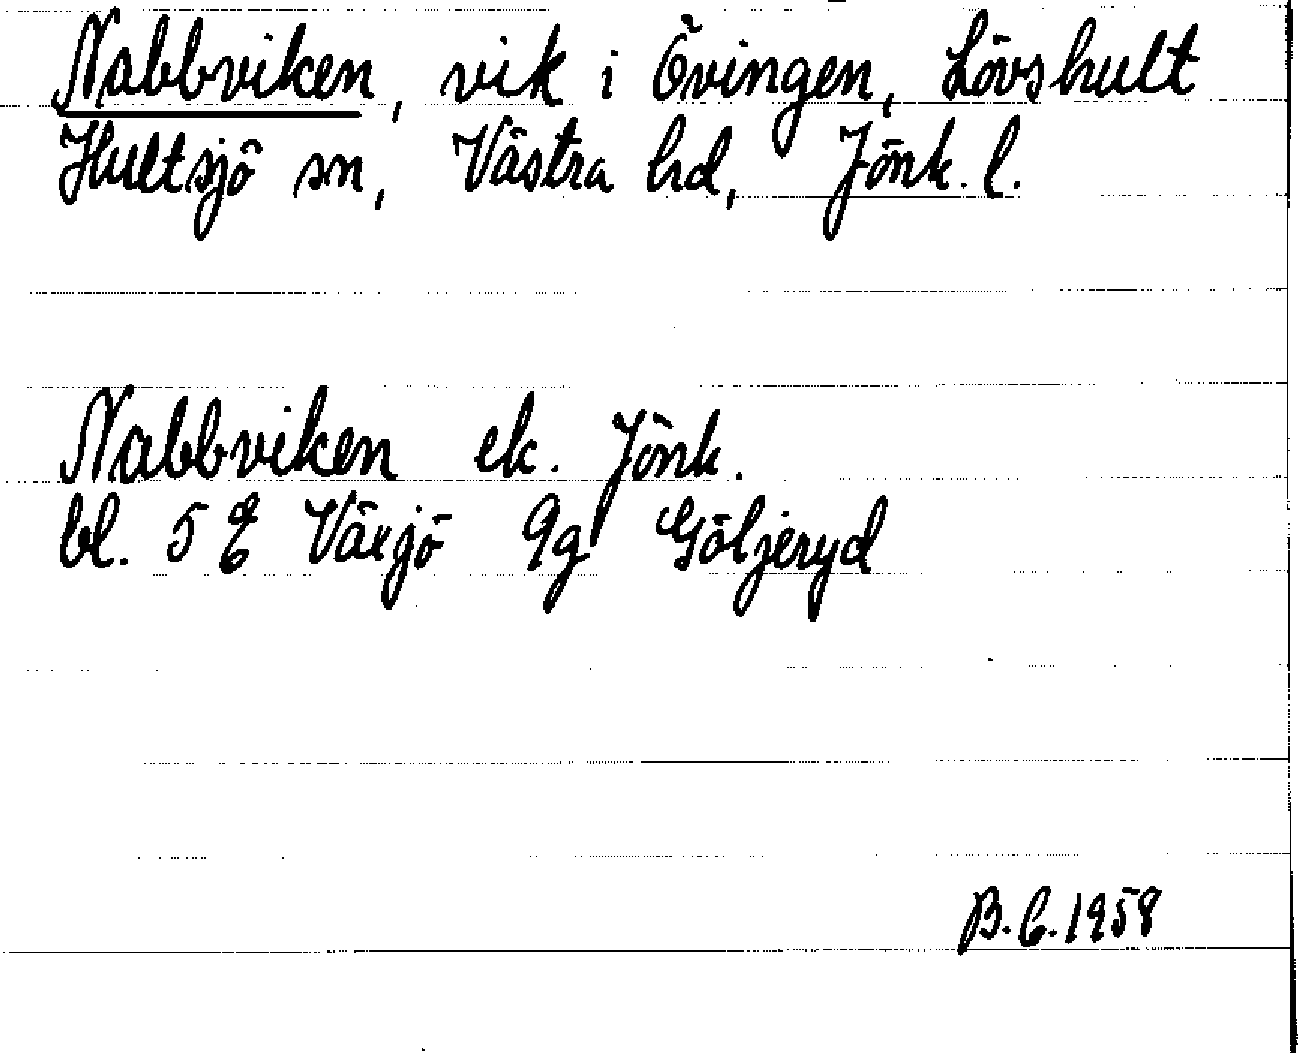 Nabbviken, vik i Övingen, Lövshult
Hultsjö sn, Västra hd, Jönk. l.
Nabbviken ek. Jönk.
bl. 5 E Växjö 9g Göljeryd
B.C. 1958